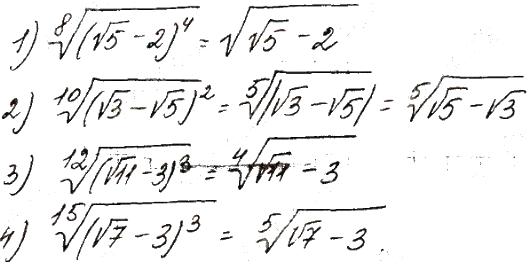 1) ⁸√((√5 − 2)⁴) = √(√5 − 2)
2) ¹⁰√((√3 − √5)²) = ⁵√(|√3 − √5|) = ⁵√(√5 − √3)
3) ¹²√((√11 − 3)³) = ⁴√(√11 − 3)
4) ¹⁵√((√7 − 3)³) = ⁵√(√7 − 3).